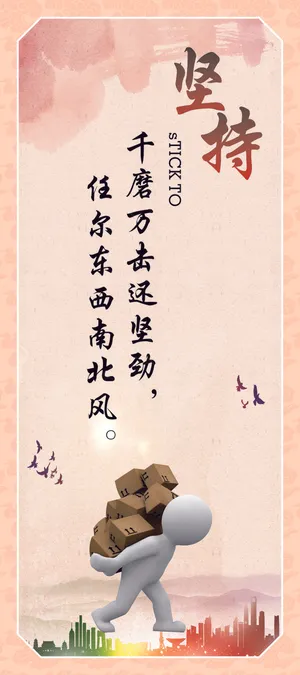 坚持
sTICK TO
千磨万击还坚劲，
任尔东西南北风。